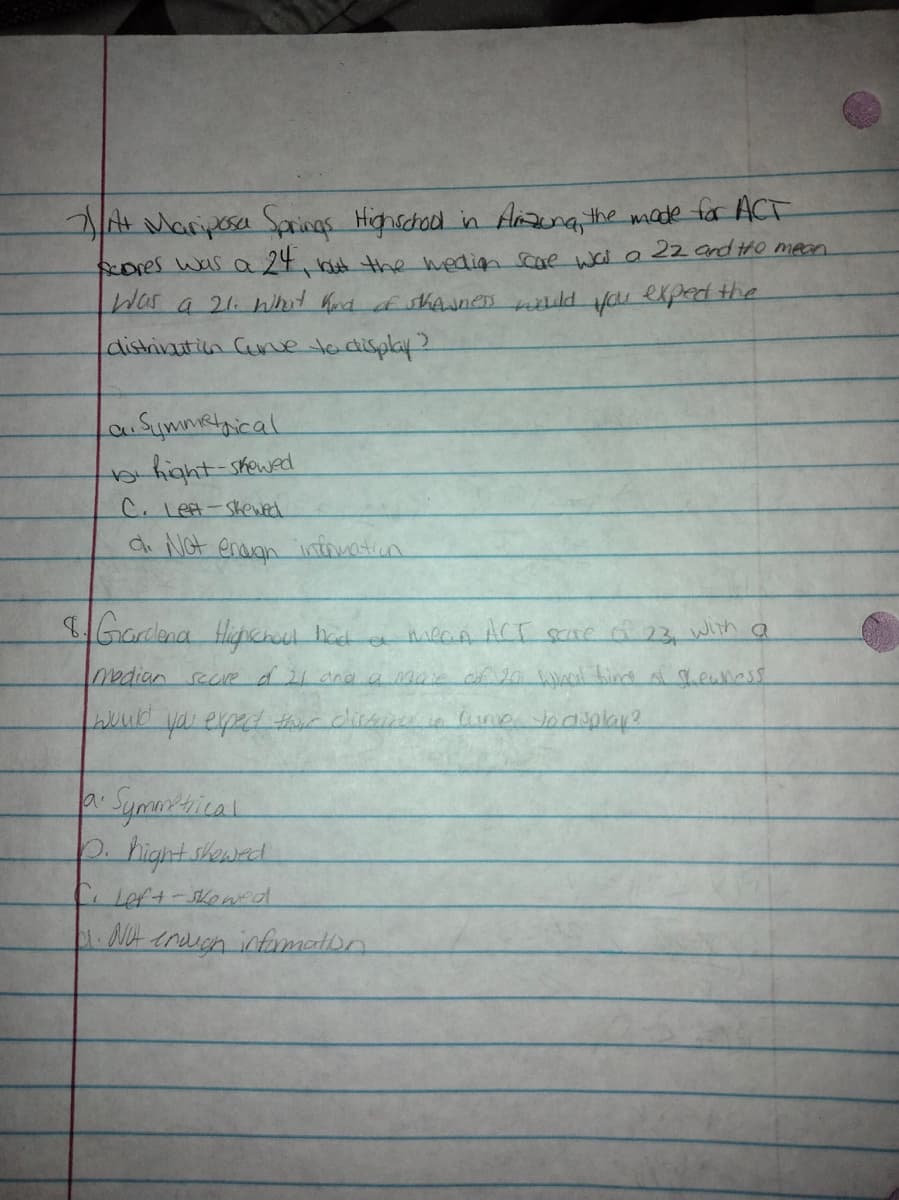 7) At Mariposa Springs Highschool in Arizona, the mode for ACT
scores was a 24, but the median score was a 22 and the mean
was a 21. What kind of skewness would you expect the
distribution curve to display?
a. Symmetrical
b. right-skewed
C. Left-skewed
d. Not enough information
8. Gardena Highschool had a mean ACT score of 23, with a
median score of 21 and a mode of 20. What kind of skewness
would you expect their curve to display?
a. Symmetrical
b. right skewed
C. Left-skewed
d. Not enough information